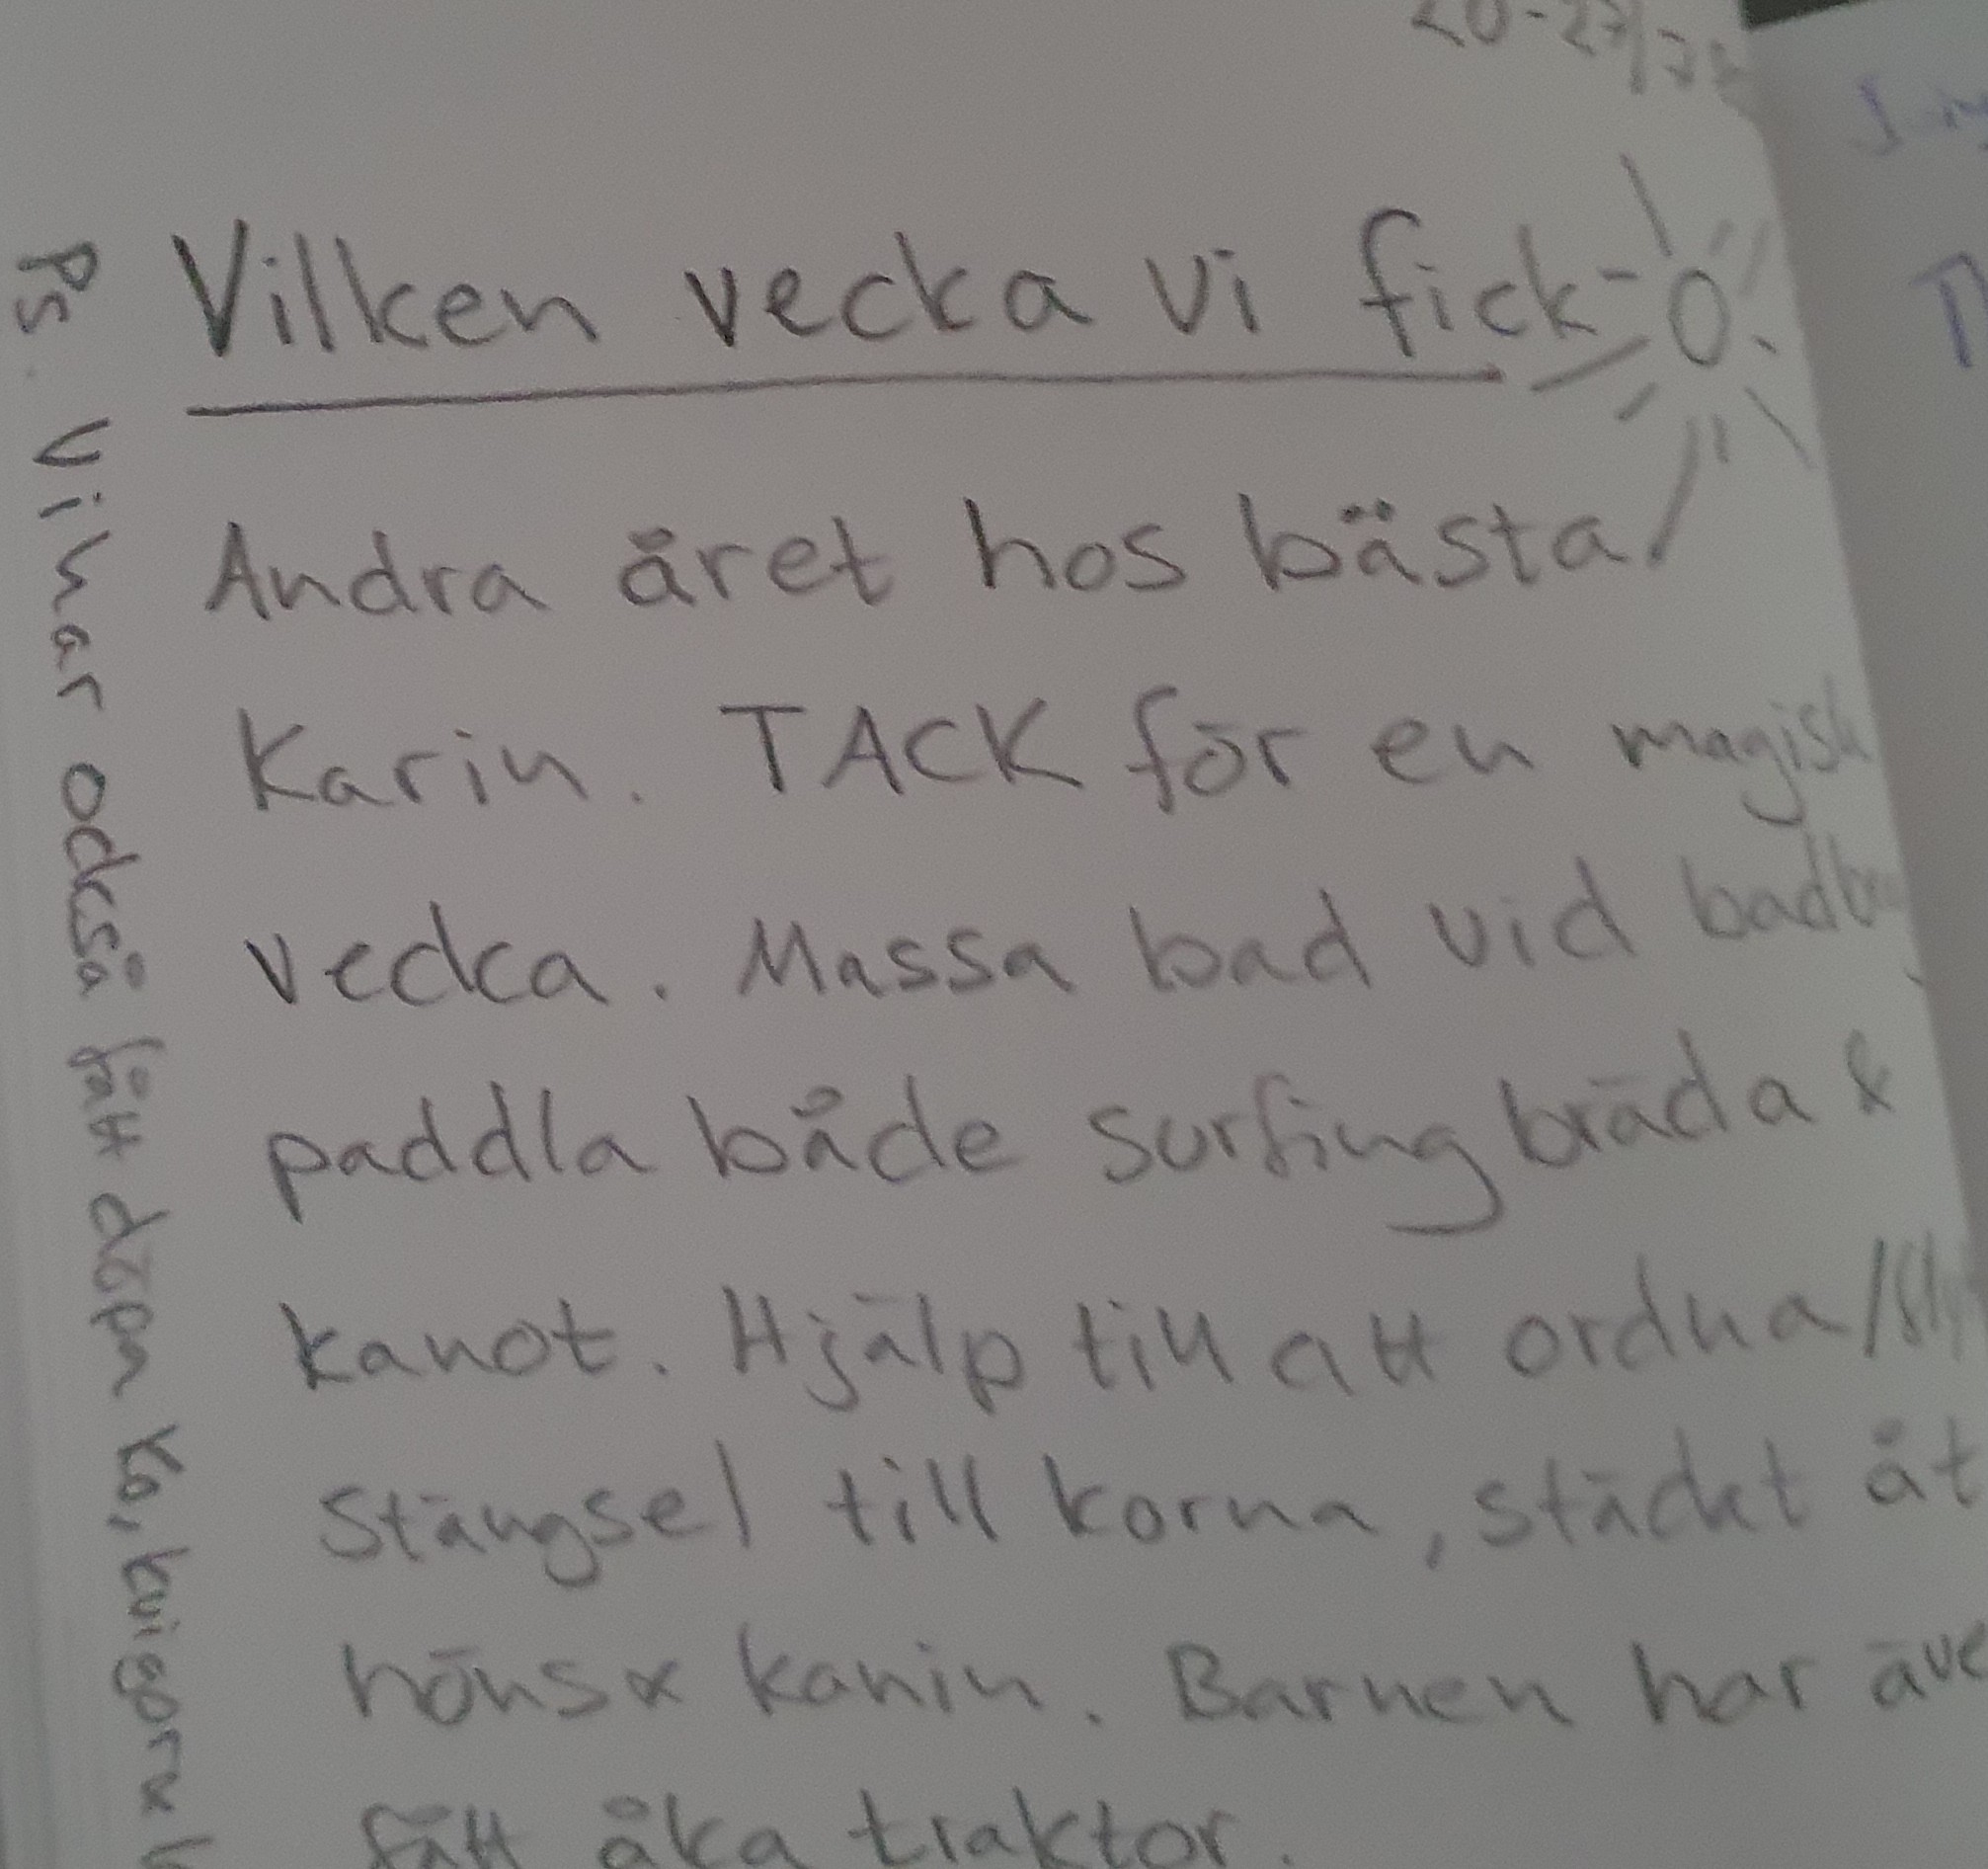 Vilken vecka vi fick
Andra året hos bästa
Karin. TACK för en magisk
vecka. Massa bad vid
paddla både surfingbräda &
kanot. Hjälp till att ordna/
stängsel till korna, städat åt
höns & kanin. Barnen har äve
fått åka traktor.
Ps. Vi har också fått döpa ko, kvigor &